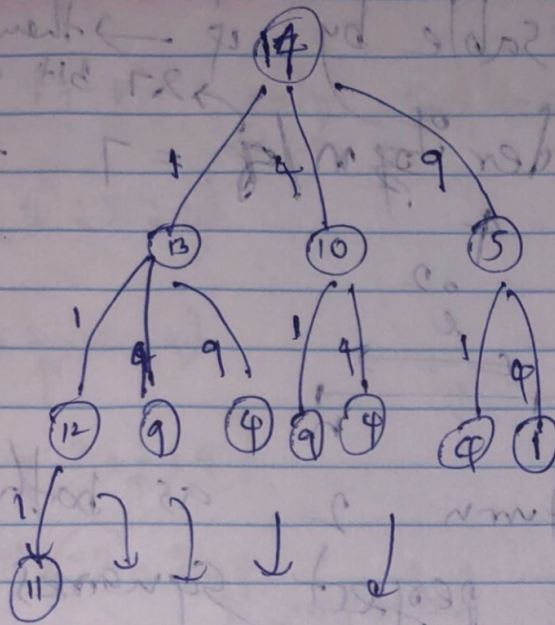 14
1 4 9
13 10 5
1 4 9 1 4 1 4
12 9 4 9 4 4 1
1
11